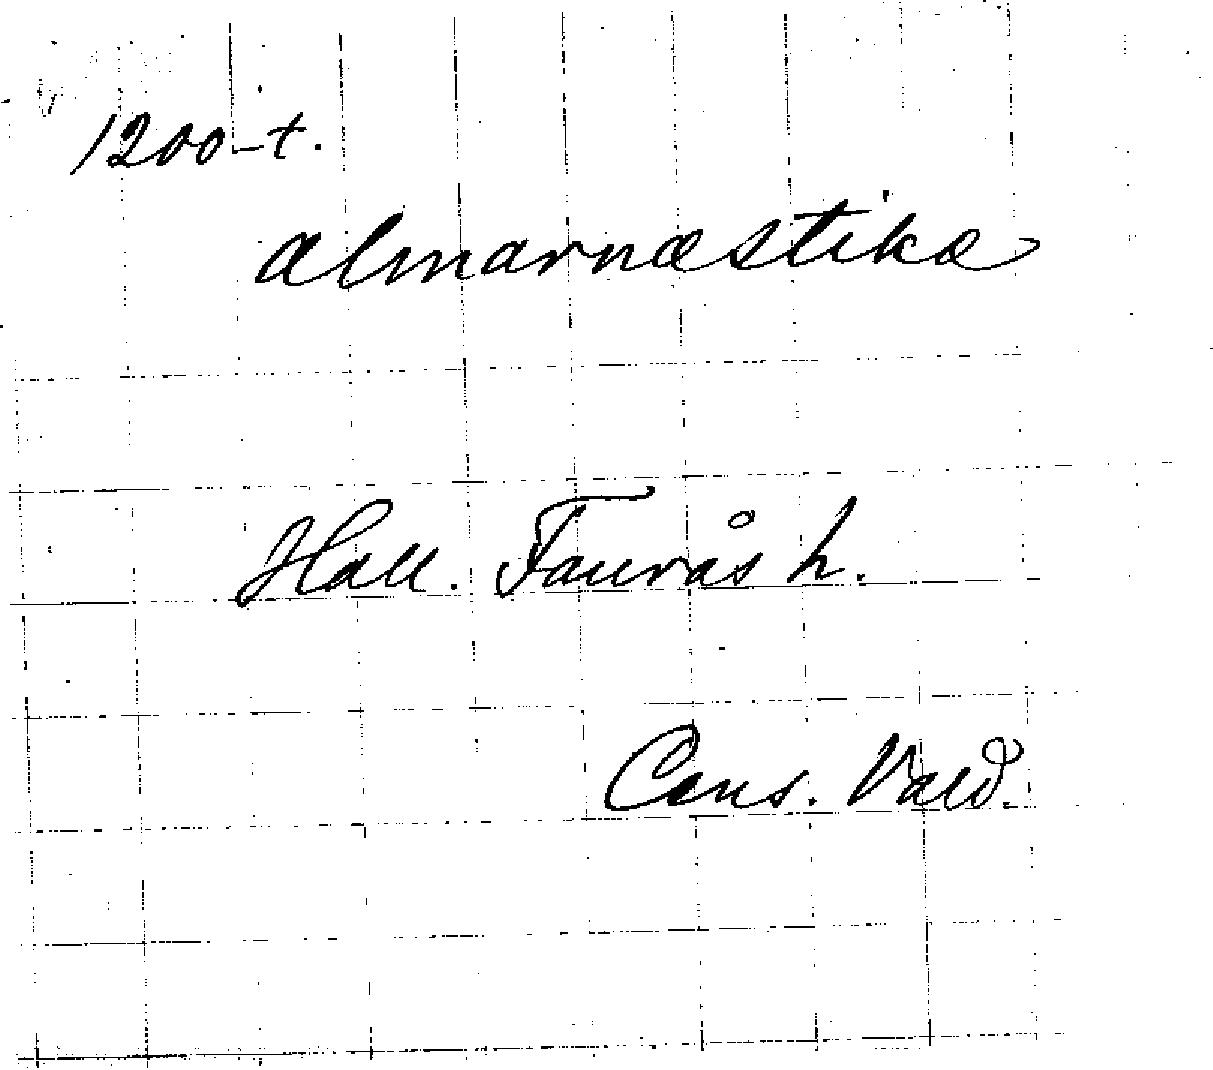 1200-t.
almarnæstika
Hall. Faurås h.
Cens. Vald.